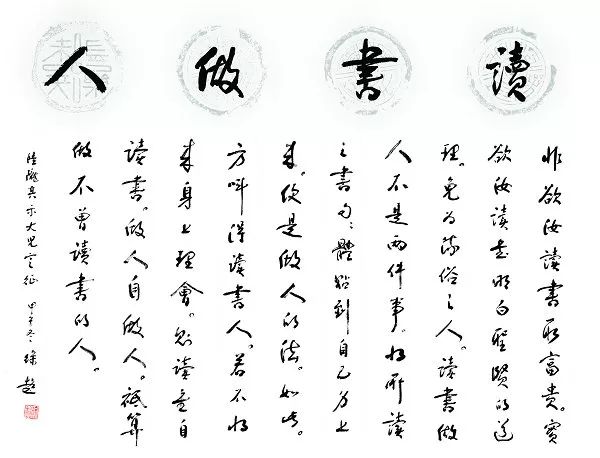 讀書做人
非欲汝讀書取富貴。實
欲汝讀書明白聖賢的道
理。免为流俗之人。讀書做
人不是兩件事。将所讀
之書句〻體貼到自己身上
来。便是做人的法。如此。
方叫得讀書人。若不将
来身上理會。则讀書自
讀書。做人自做人。祗算
做不曾讀書的人。
陸隴其示大兒定征 甲午冬 徐超